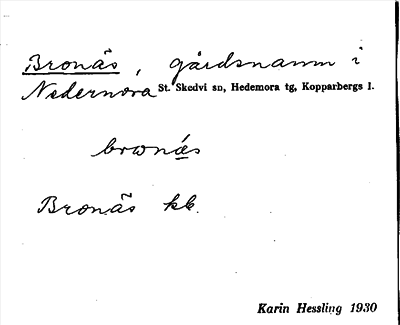 Bronäs, gårdsnamn i
Nedernora St. Skedvi sn, Hedemora tg, Kopparbergs l.
Bronäs kk.
Karin Hessling 1930